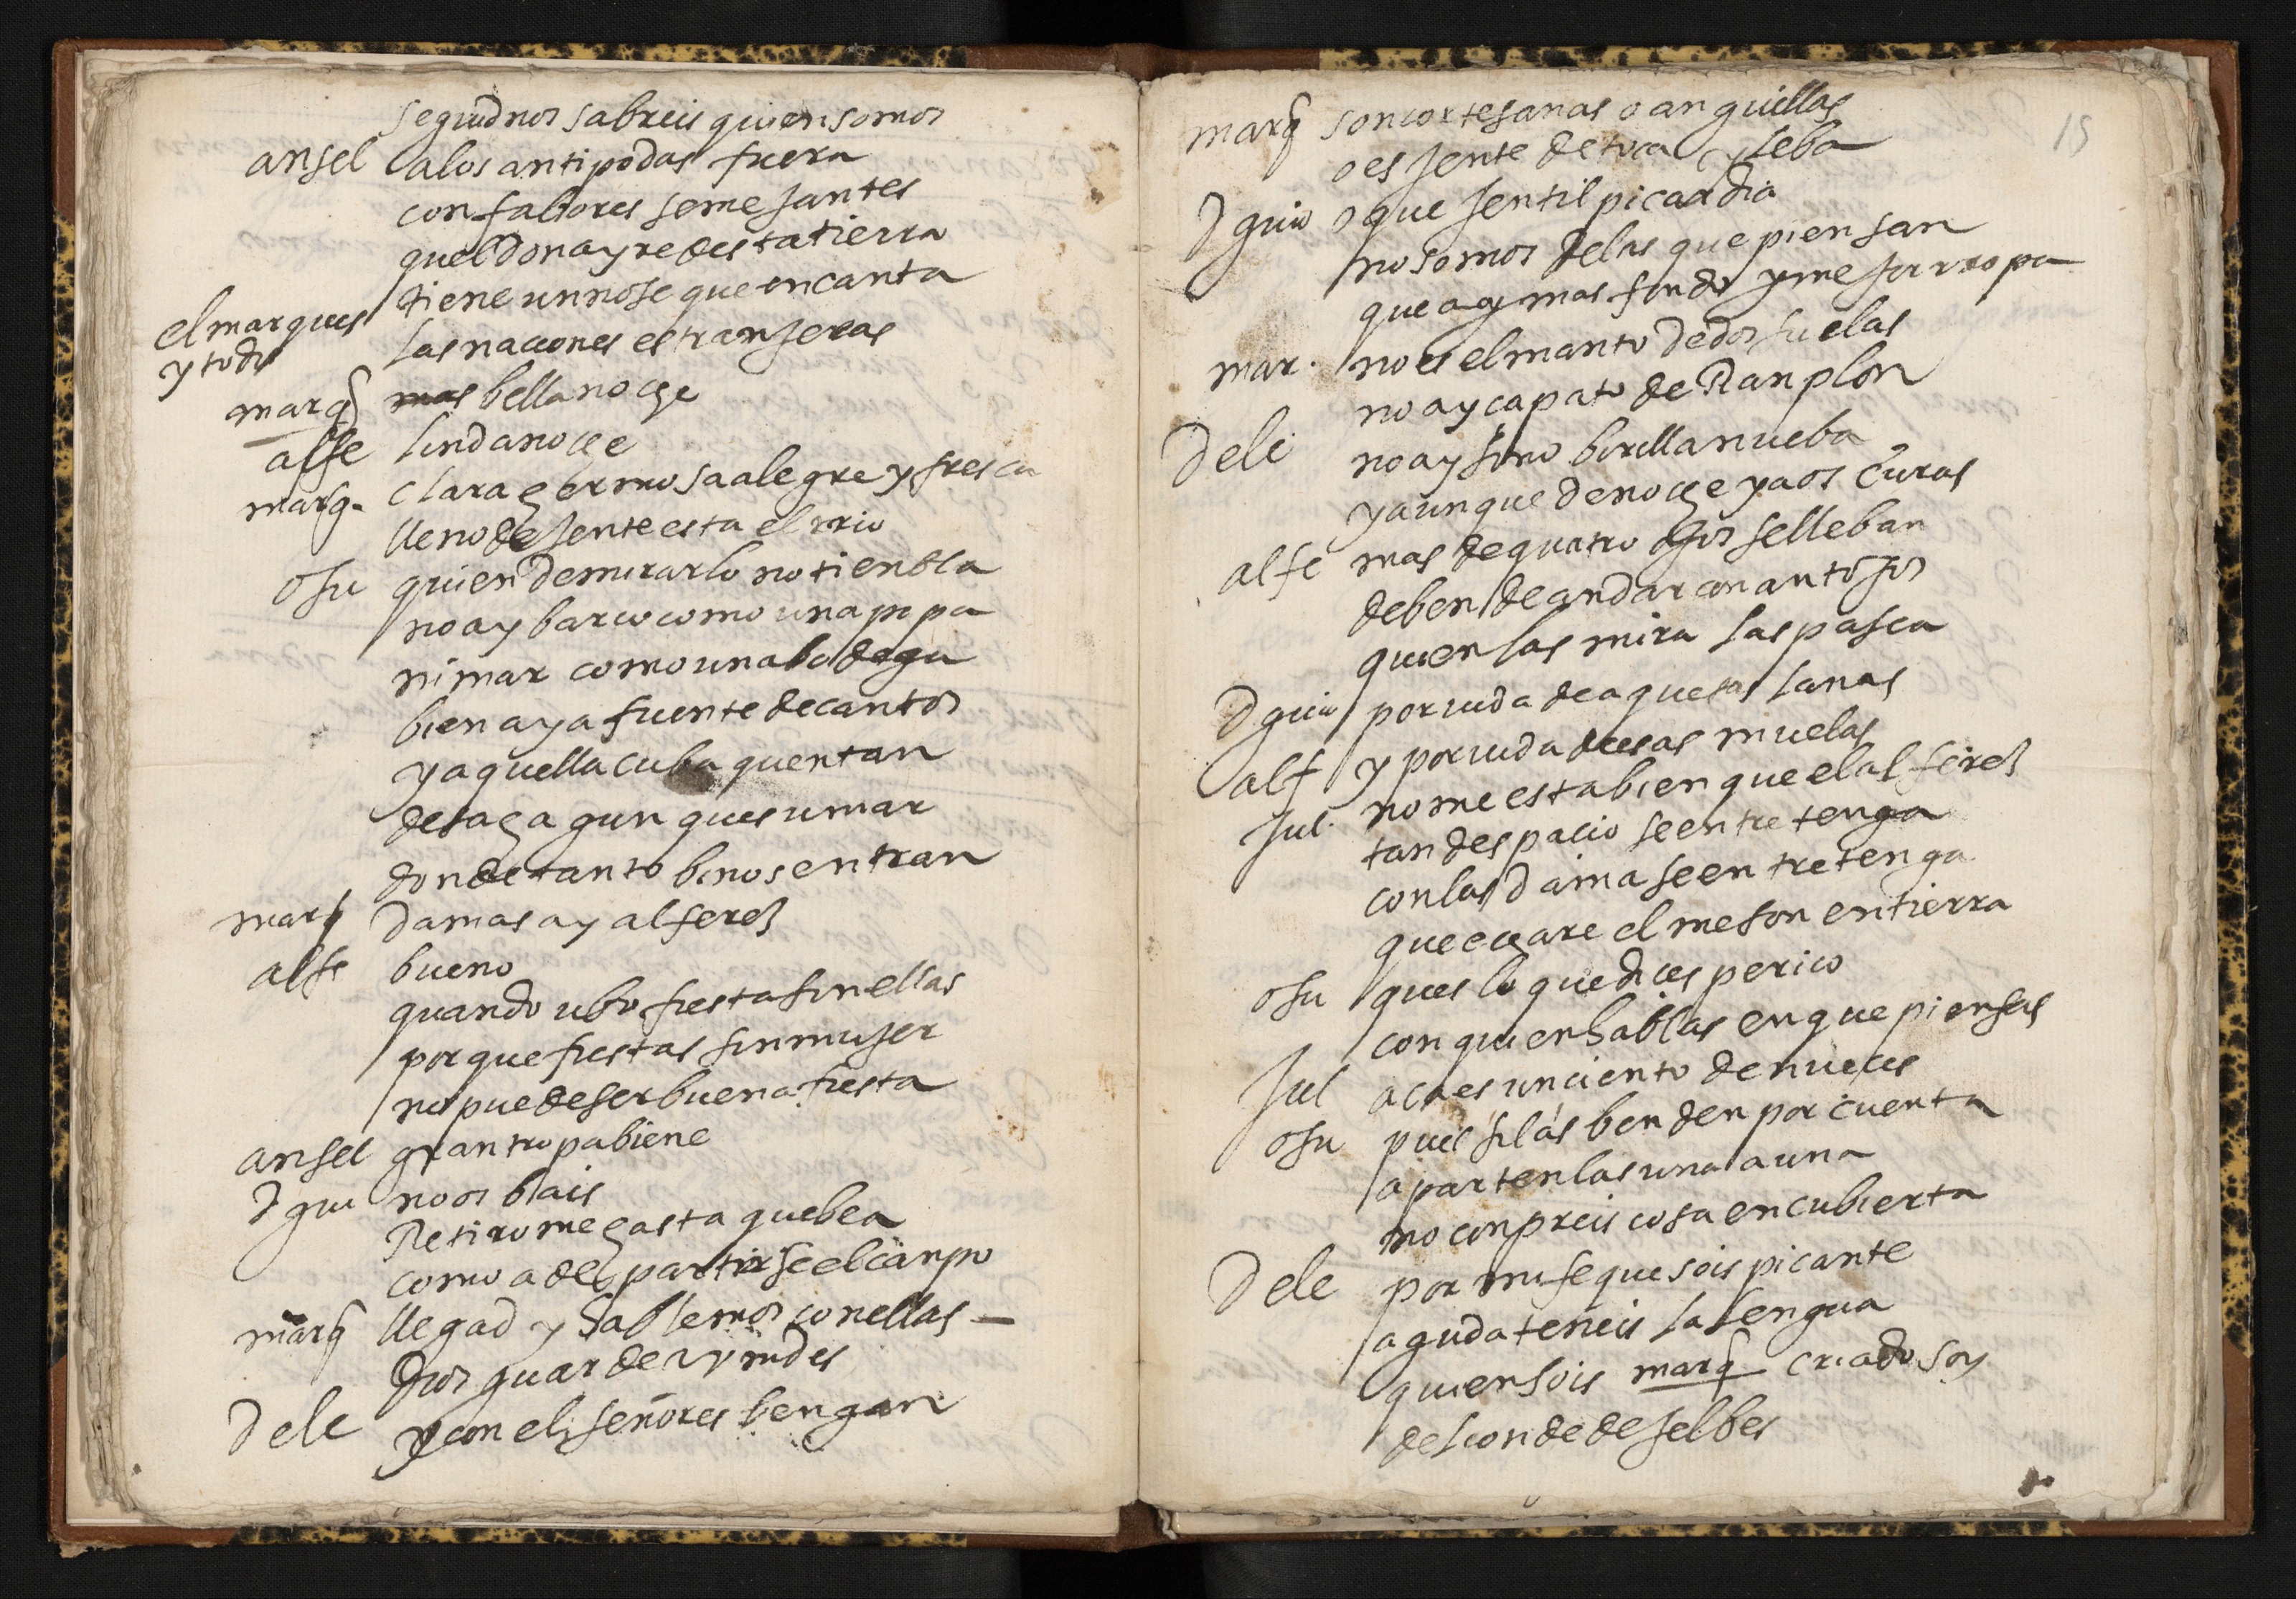 seguidnos sabreis quien somos
ansel a los antipodas fuera
con fabores semejantes
quel donayre desta tierra
tiene un no se que encanta
el marques y todos
las naciones estranjeras
marq mas bella noche
alfe linda noche
marq. clara hermosa alegre y fresca
lleno de jente esta el rrio
osu quien de mirarlo no tienbla
no ay barco como una pipa
ni mar como una bodega
bien aya fuente de cantos
y aquella cuba quentan
de sahagun ques un mar
donde tanto binos entran
marq damas ay alferes
alfe bueno
quando ubo fiesta sin ellas
porque fiestas sin mujer
no puede ser buena fiesta
ansel gran tropa biene
d gui no os bais
Retirome hasta que bea
como a de partirse el canpo
marq llegad y hablemos con ellas
dios guarde a vs mdes
d ele y con el señores bengan
15
marq son cortesanas o anguillas
o es jente de toca y leba
d guio o que jentil picardia
no somos de las que piensan
que ay mas fondo y mejor rropa
mar. no es el manto de dos suelas
no ay capato de Ranplon
d ele no ay sino birilla nueba
y aunque de noche y a os curas
alfe mas de quatro ojos se lleban
deben de andar con antojos
quien las mira las pasea
d guio por vida de aquesas lanas
alf y por vida de esas muelas
jul. no me esta bien que el alferes
tan despacio se entretenga
con las dama se entretenga
que echare el meson en tierra
osu ques lo que dices perico
con quien hablas en que piensas
jul aca es un ciento de nueces
osu pues si las benden por cuenta
apartenlas una a una
no conpreis cosa encubierta
d ele por mi fe que sois picante
aguda teneis la lengua
quien sois marq criado soy
del conde de jelbes